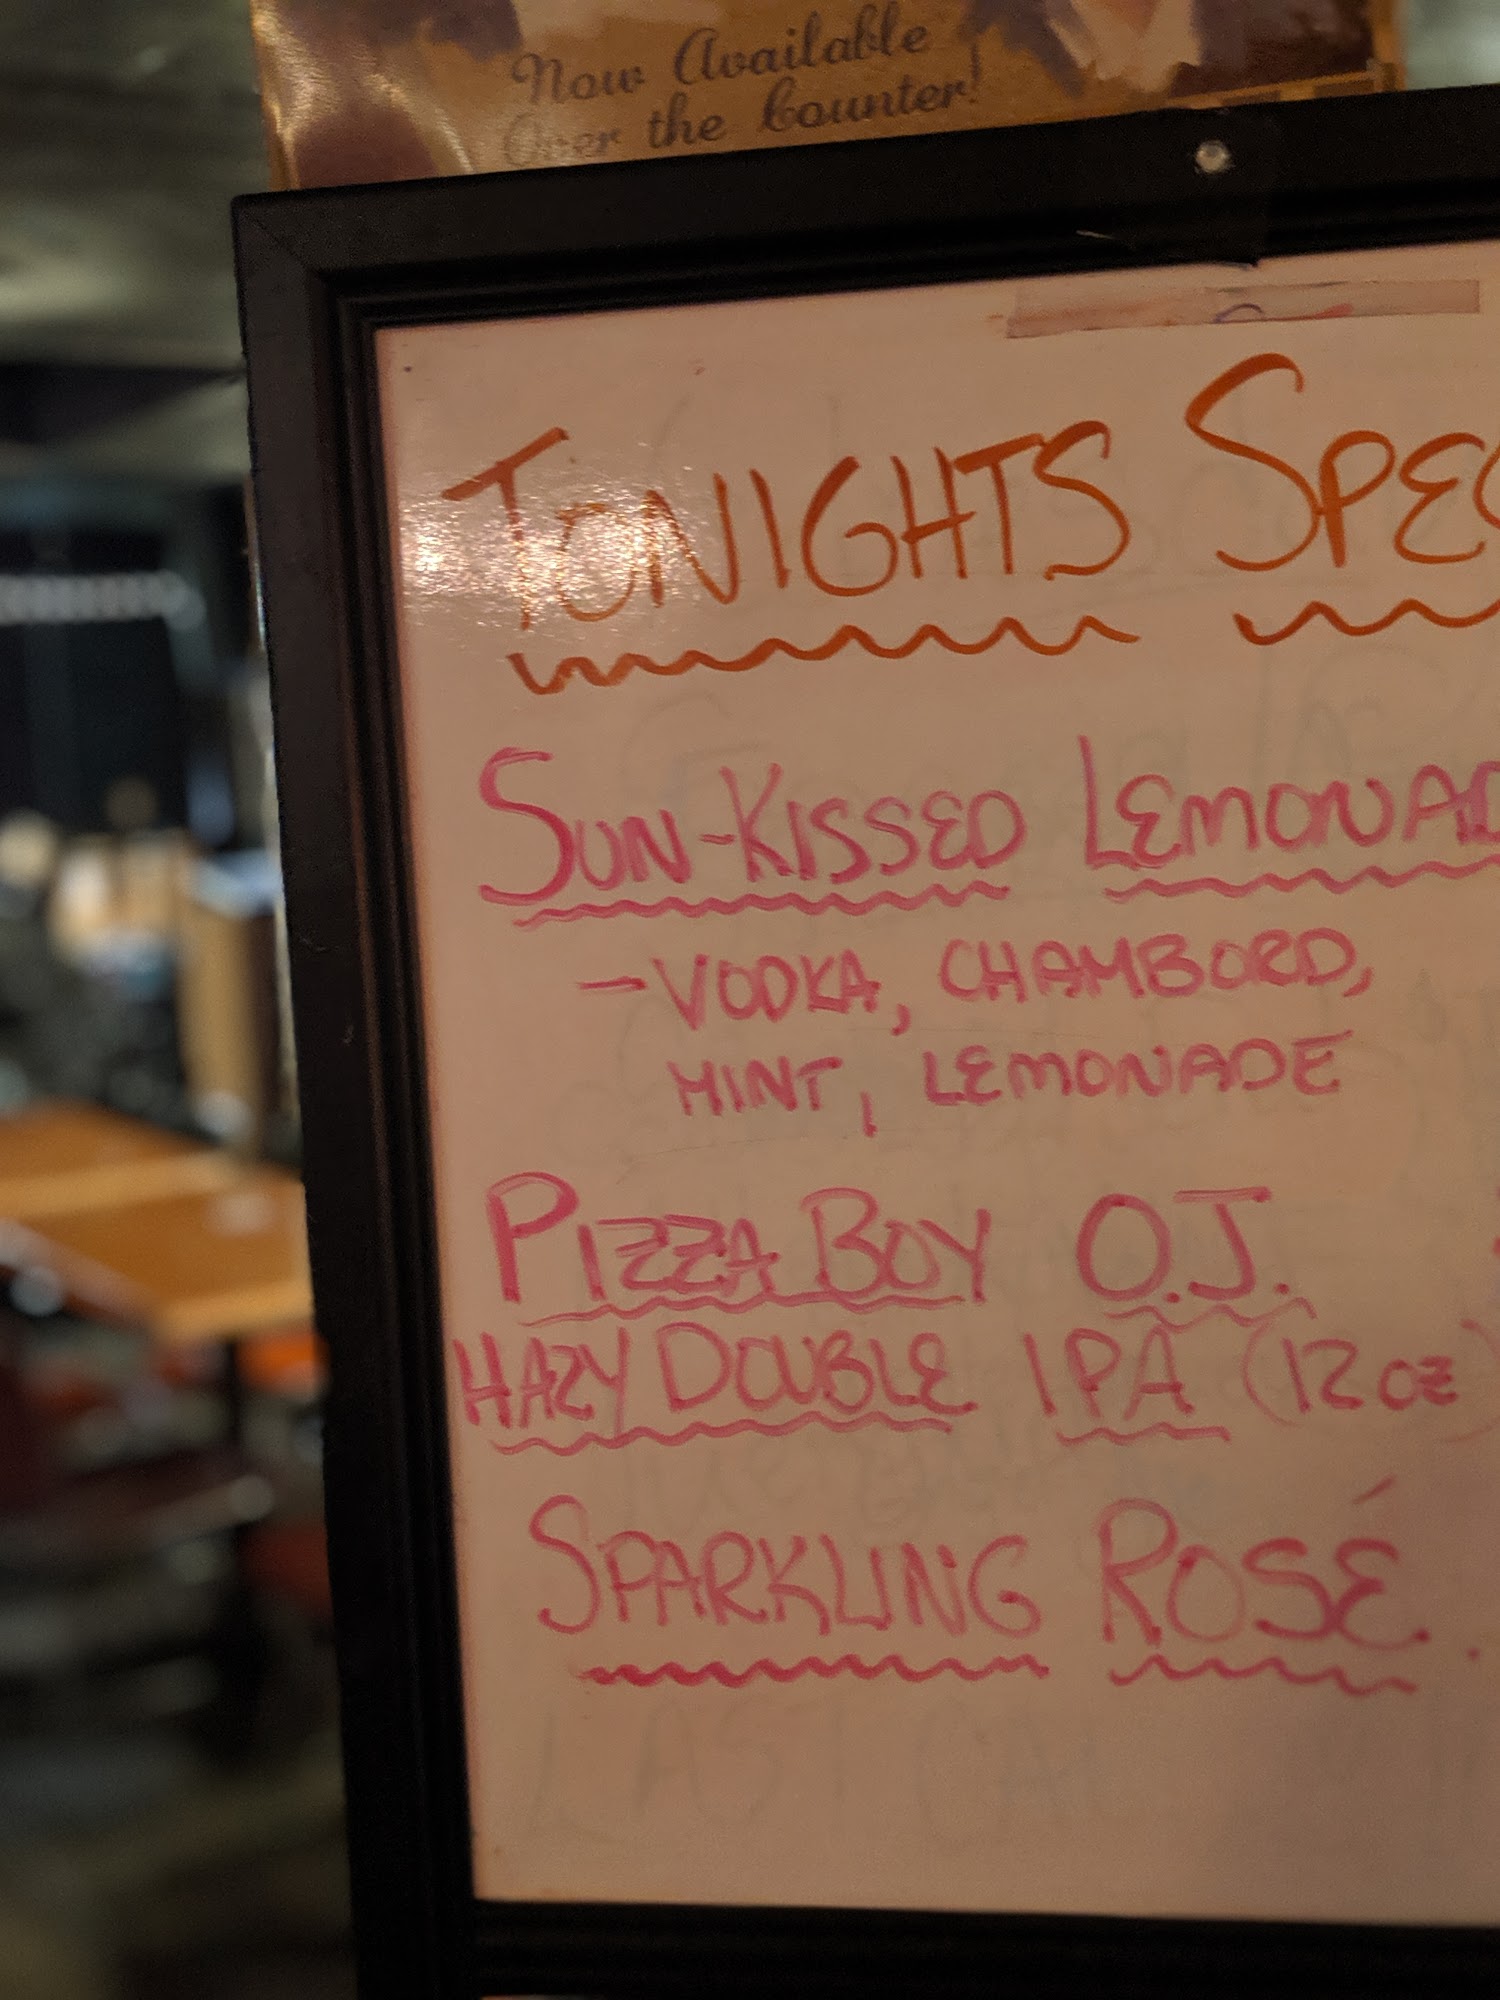 Now Available
Over the Counter!
TONIGHTS SPEC
SUN-KISSED LEMONAD
- VODKA, CHAMBORD,
MINT, LEMONADE
PIZZA BOY O.J.
HAZY DOUBLE IPA (12 oz)
SPARKLING ROSÉ.